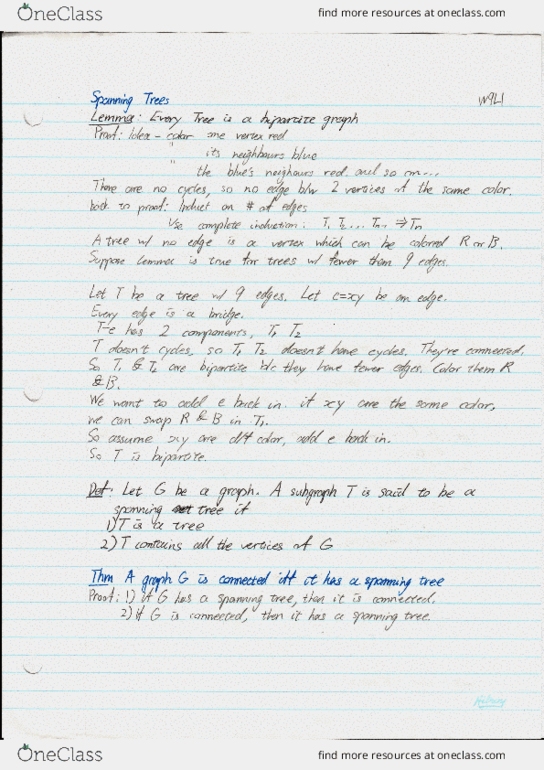 OneClass
find more resources at oneclass.com
Spanning Trees
W9L1
Lemma: Every Tree is a bipartite graph
Proof: Idea - color one vertex red
" its neighbours blue
" the blue's neighours red. and so on...
There are no cycles, so no edge b/w 2 vertices of the same color.
back to proof: Induct on # of edges
Use complete induction: T₁ T₂ ... Tn-1 ⇒ Tn
A tree w/ no edge is a vertex which can be colored R or B.
Suppose Lemma is true for trees w/ fewer than q edges.
Let T be a tree w/ q edges. Let e=xy be an edge.
Every edge is a bridge.
T-e has 2 components, T₁ T₂
T doesn't cycles, so T₁ T₂ doesn't have cycles. They're connected.
So T₁ & T₂ are bipartite b/c they have fewer edges. Color them R
& B.
We want to add e back in. if xy are the same color,
we can swap R & B in T₁.
So assume xy are diff color, add e back in.
So T is bipartite.
Def: Let G be a graph. A subgraph T is said to be a
spanning tree if
1) T is a tree
2) T contains all the vertices of G
Thm A graph G is connected iff it has a spanning tree
Proof: 1) if G has a spanning tree, then it is connected.
2) if G is connected, then it has a spanning tree.
OneClass
find more resources at oneclass.com